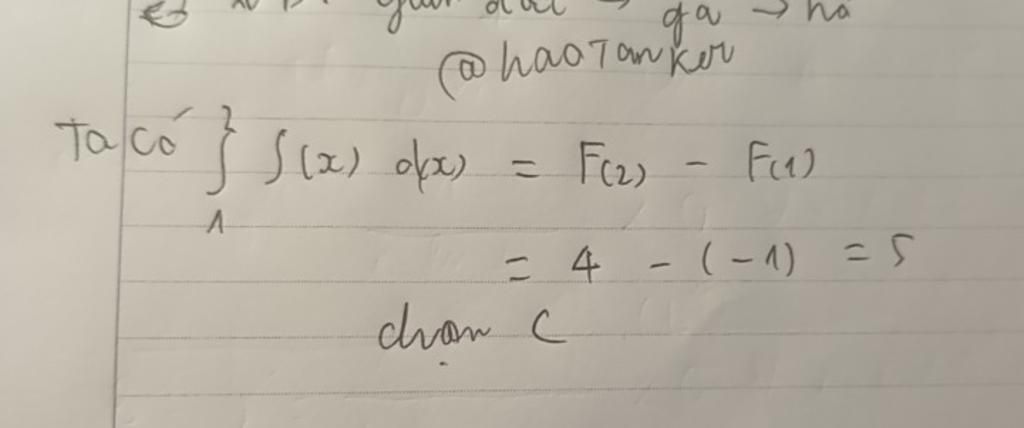 ga → ha
@haoTanker
Ta có ∫₁² f(x) d(x) = F(2) - F(1)
= 4 - (-1) = 5
chọn C